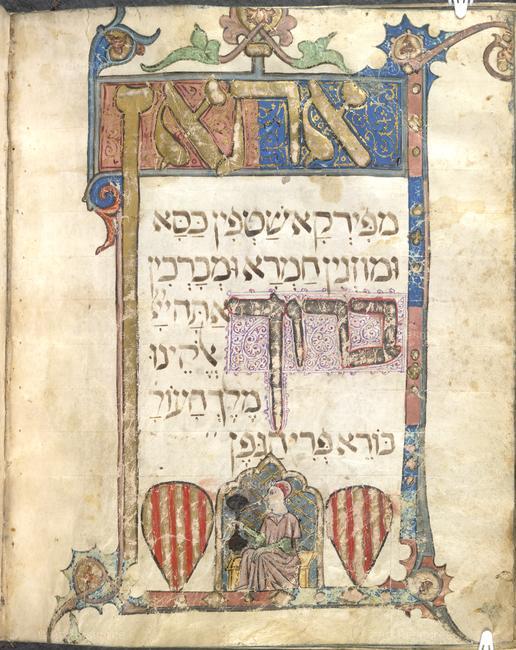 אדאן
מְפִירְקָא שַׁטְפִין כַּסָּא
וּמוֹזְגִין חַמְרָא וּמְבָרְכִין
ברוך אַתָּה יְיָ
אֱלֹהֵינוּ
מֶלֶךְ הָעוֹלָ
בּוֹרֵא פְּרִי הַגֶּפֶן